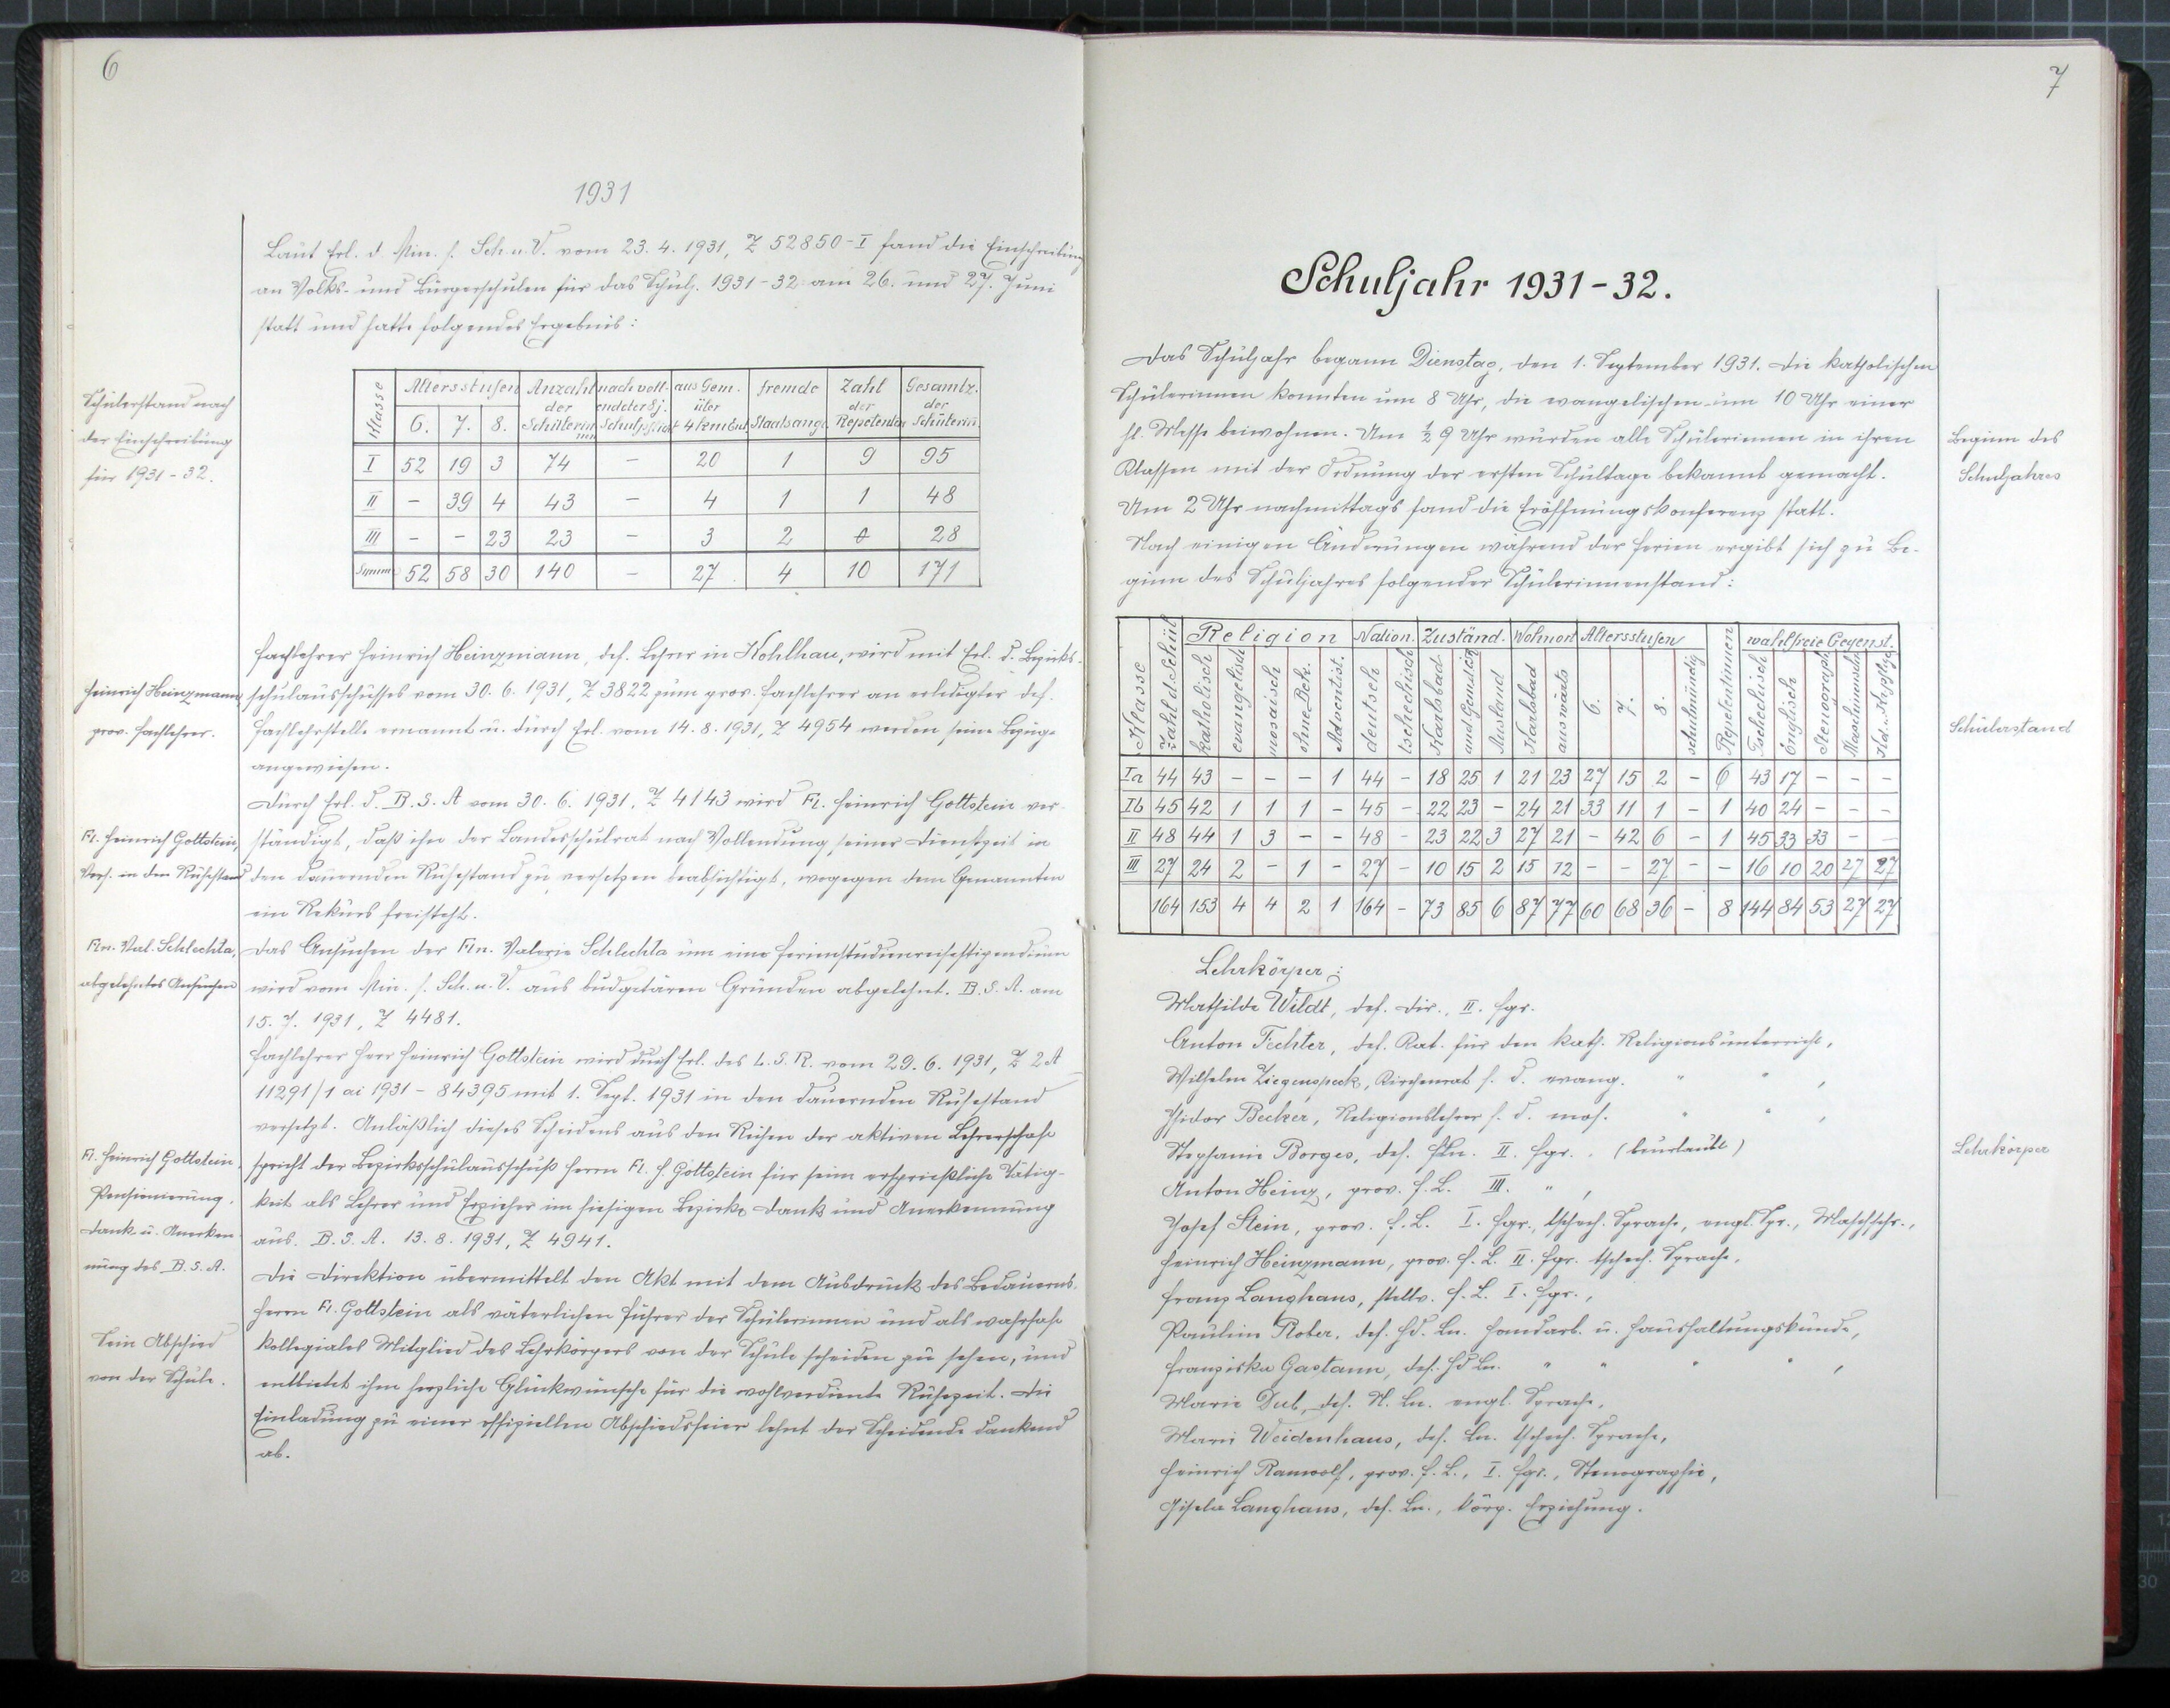 6
1931
Laut Erl. d. Min. f. Sch. u. V. vom 23. 4. 1931, Z 52850-I fand die Einschreibung
an Volks- und Bürgerschulen für das Schulj. 1931-32 am 26. und 27. Juni
statt und hatte folgendes Ergebnis:
Schülerstand nach
der Einschreibung
für 1931-32.
Klasse | Altersstufen 6. 7. 8. | Anzahl der Schülerinnen | nach voll-endeter 8j. Schulpflicht | aus Gem. über 4 km Entf. | fremde Staatsang. | Zahl der Repetenten | Gesamtz. der Schülerin.
I 52 19 3 74 – 20 1 9 95
II – 39 4 43 – 4 1 1 48
III – – 23 23 – 3 2 0 28
Summe 52 58 30 140 – 27 4 10 171
Heinrich Heinzmann,
prov. Fachlehrer.
Fachlehrer Heinrich Heinzmann, def. Lehrer in Kohlhau, wird mit Erl. d. Bezirks-
schulausschusses vom 30. 6. 1931, Z 3822 zum prov. Fachlehrer an erledigter def.
Fachlehrstelle ernannt u. durch Erl. vom 14. 8. 1931, Z 4954 werden seine Bezüge
angewiesen.
Fl. Heinrich Gottstein,
Vers. in den Ruhestand
Durch Erl. d. B. S. A vom 30. 6. 1931, Z 4143 wird Fl. Heinrich Gottstein ver-
ständigt, daß ihn der Landesschulrat nach Vollendung seiner Dienstzeit in
den dauernden Ruhestand zu versetzen beabsichtigt, wogegen dem Genannten
ein Rekurs freisteht.
Fln. Val. Schlechta,
abgelehntes Ansuchen
Das Ansuchen der Fln. Valerie Schlechta um eine Ferienstudienreisestipendium
wird vom Min. f. Sch. u. V. aus budgetären Gründen abgelehnt. B. S. A. am
15. 7. 1931, Z 4481.
Fachlehrer Herr Heinrich Gottstein wird durch Erl. des L. S. R. vom 29. 6. 1931, Z 2 A
11291/1 ai 1931 - 84395 mit 1. Sept. 1931 in den dauernden Ruhestand
versetzt. Anläßlich dieses Scheidens aus den Reihen der aktiven Lehrerschaft
Fl. Heinrich Gottstein,
Pensionierung,
Dank u. Anerken-
nung des B. S. A.
spricht der Bezirksschulausschuß Herrn Fl. H. Gottstein für seine ersprießliche Tätig-
keit als Lehrer und Erzieher im hiesigen Bezirke Dank und Anerkennung
aus. B. S. A. 13. 8. 1931, Z 4941.
Die Direktion übermittelt den Akt mit dem Ausdruck des Bedauerns,
Herrn Fl. Gottstein als väterlichen Führer der Schülerinnen und als wahrhaft
Sein Abschied
von der Schule.
kollegiales Mitglied des Lehrkörpers von der Schule scheiden zu sehen, und
entbietet ihm herzliche Glückwünsche für die wohlverdiente Ruhezeit. Die
Einladung zu einer offiziellen Abschiedsfeier lehnt der Scheidende dankend
ab.
7
Schuljahr 1931-32.
Das Schuljahr begann Dienstag, den 1. September 1931. Die katholischen
Schülerinnen konnten um 8 Uhr, die evangelischen um 10 Uhr einer
hl. Messe beiwohnen. Um ½ 9 Uhr wurden alle Schülerinnen in ihren
Klassen mit der Ordnung der ersten Schultage bekannt gemacht.
Um 2 Uhr nachmittags fand die Eröffnungskonferenz statt.
Nach einigen Änderungen während der Ferien ergibt sich zu Be-
ginn des Schuljahres folgender Schülerinnenstand:
Beginn des
Schuljahres
Klasse | Zahl d. Schül. | Religion: katholisch, evangelisch, mosaisch, ohne Bek., Adventist. | Nation.: deutsch, tschechisch | Zuständ.: Karlsbad, and. Gemeind., Ausland | Wohnort: Karlsbad, auswärts | Altersstufen: 6. 7. 8. schulmündig | Repetentinnen | wahlfreie Gegenst.: Tschechisch, Englisch, Stenograph., Maschinensch.
Ia 44 43 – – – 1 44 – 18 25 1 21 23 27 15 2 – 6 43 17 – – –
Ib 45 42 1 1 1 – 45 – 22 23 – 24 21 33 11 1 – 1 40 24 – – –
II 48 44 1 3 – – 48 – 23 22 3 27 21 – 42 6 – 1 45 33 33 – –
III 27 24 2 – 1 – 27 – 10 15 2 15 12 – – 27 – – 16 10 20 27 27
164 153 4 4 2 1 164 – 73 85 6 87 77 60 68 36 – 8 144 84 53 27 27
Schülerstand
Lehrkörper:
Mathilde Wildt, def. Dir., II. Fgr.
Anton Fechter, def. Kat. für den kath. Religionsunterricht,
Wilhelm Ziegenspeck, Kirchenrat f. d. evang. " " ,
Isidor Becker, Religionslehrer f. d. mos. " " ,
Stephanie Borges, def. Fln. II. Fgr., (beurlaubt)
Anton Heinz, prov. F. L. III. " ,
Josef Stein, prov. F. L. I. Fgr., tschech. Sprache, engl. Spr., Maschschr.,
Heinrich Heinzmann, prov. F. L. II. Fgr. tschech. Sprache,
Franz Langhans, stellv. F. L. I. Fgr.,
Pauline Rober, def. Hd. Ln. Handarb. u. Haushaltungskunde,
Franziska Gastann, def. Hd Ln. " " " " ,
Marie Dub, def. N. Ln. engl. Sprache,
Marie Weidenhaus, def. Ln. tschech. Sprache,
Heinrich Ramwolf, prov. F. L., I. Fgr., Stenographie,
Gisela Langhans, def. Ln., körp. Erziehung.
Lehrkörper